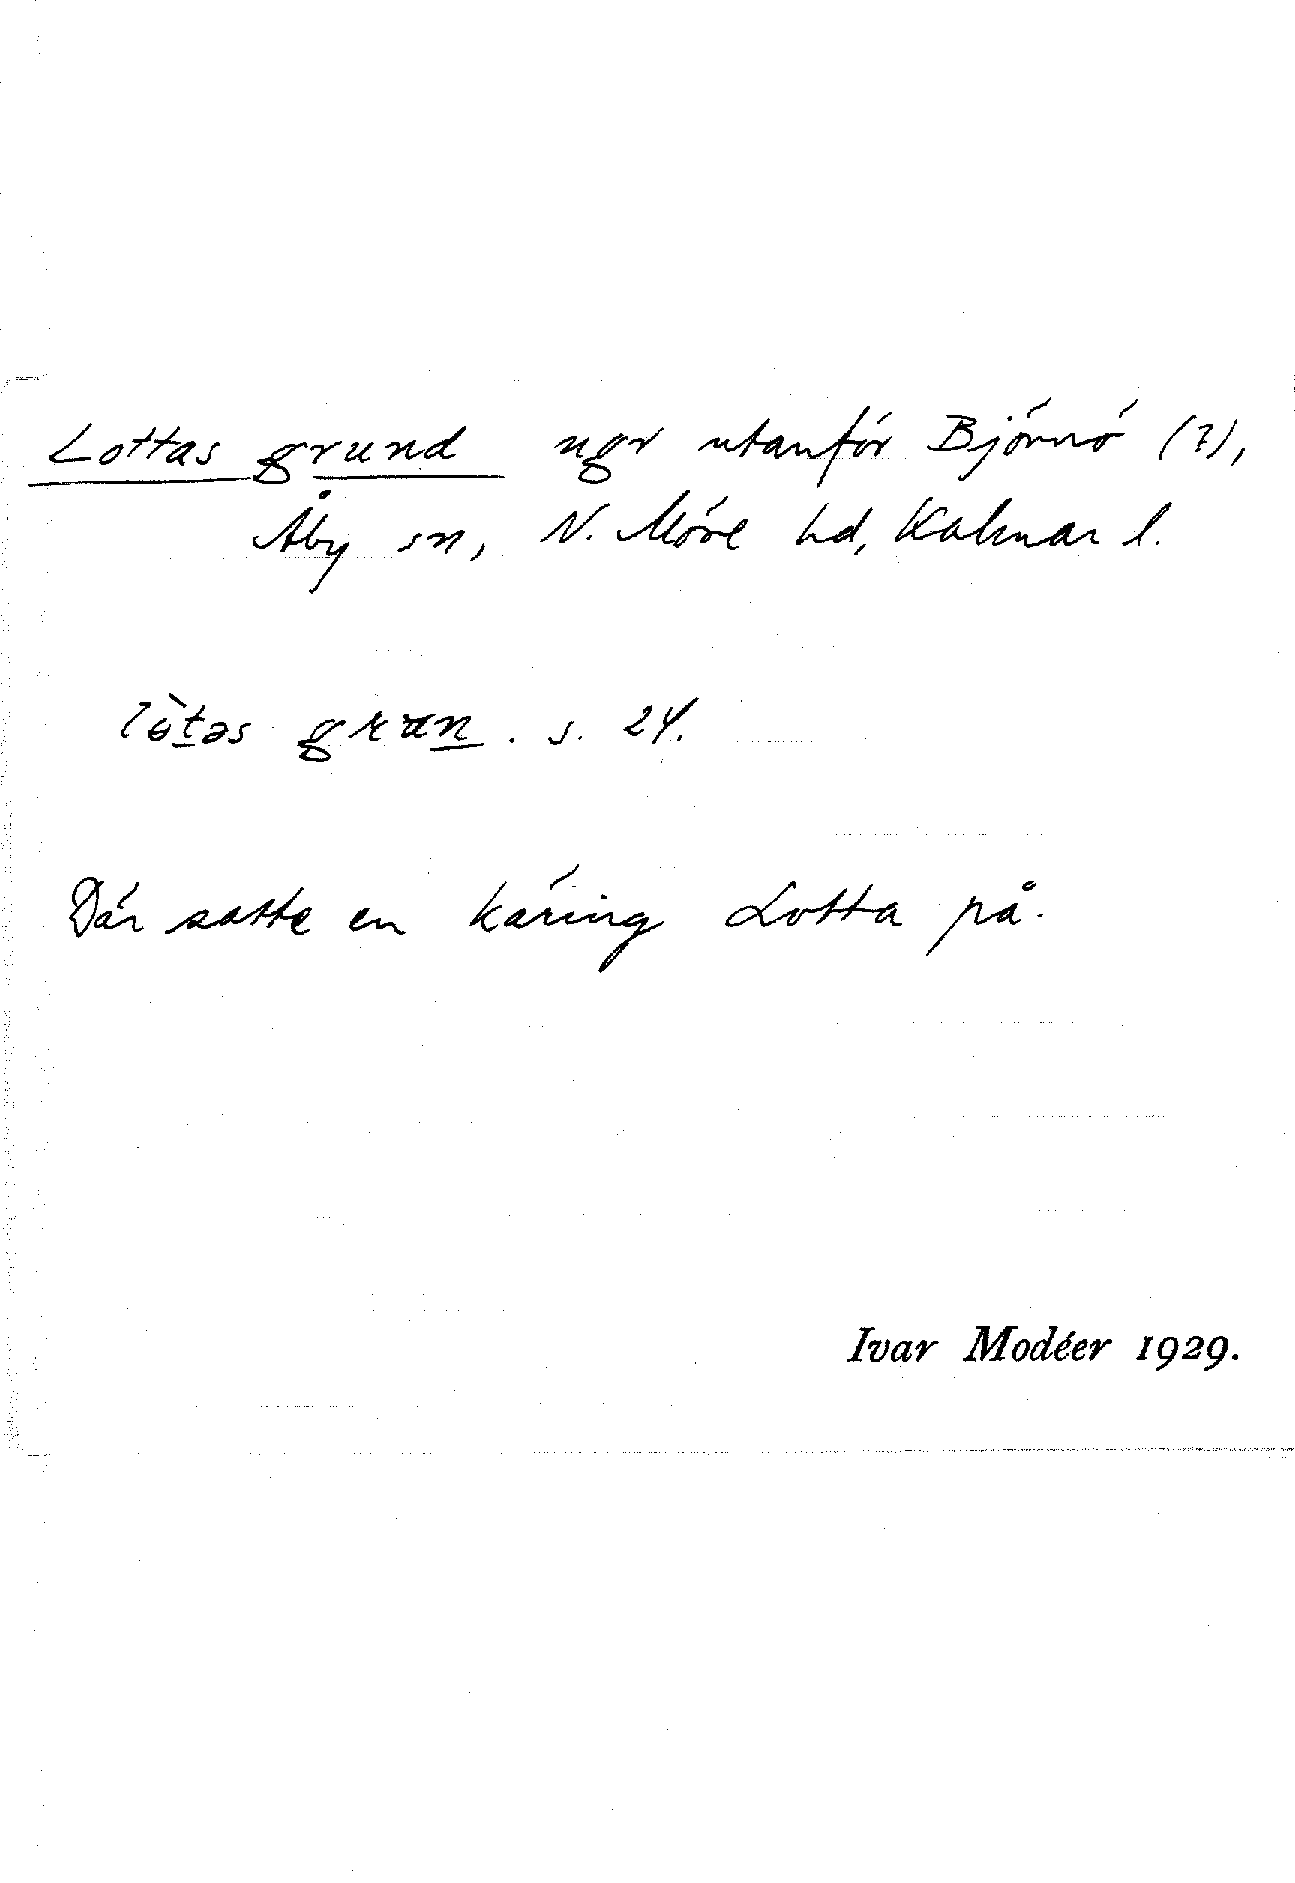 Lottas grund ngr utanför Björnö (?),
Åby sn, N. Möre hd, Kalmar l.
lòtəs grun. s. 24.
Där satte en käring Lotta på.
Ivar Modéer 1929.